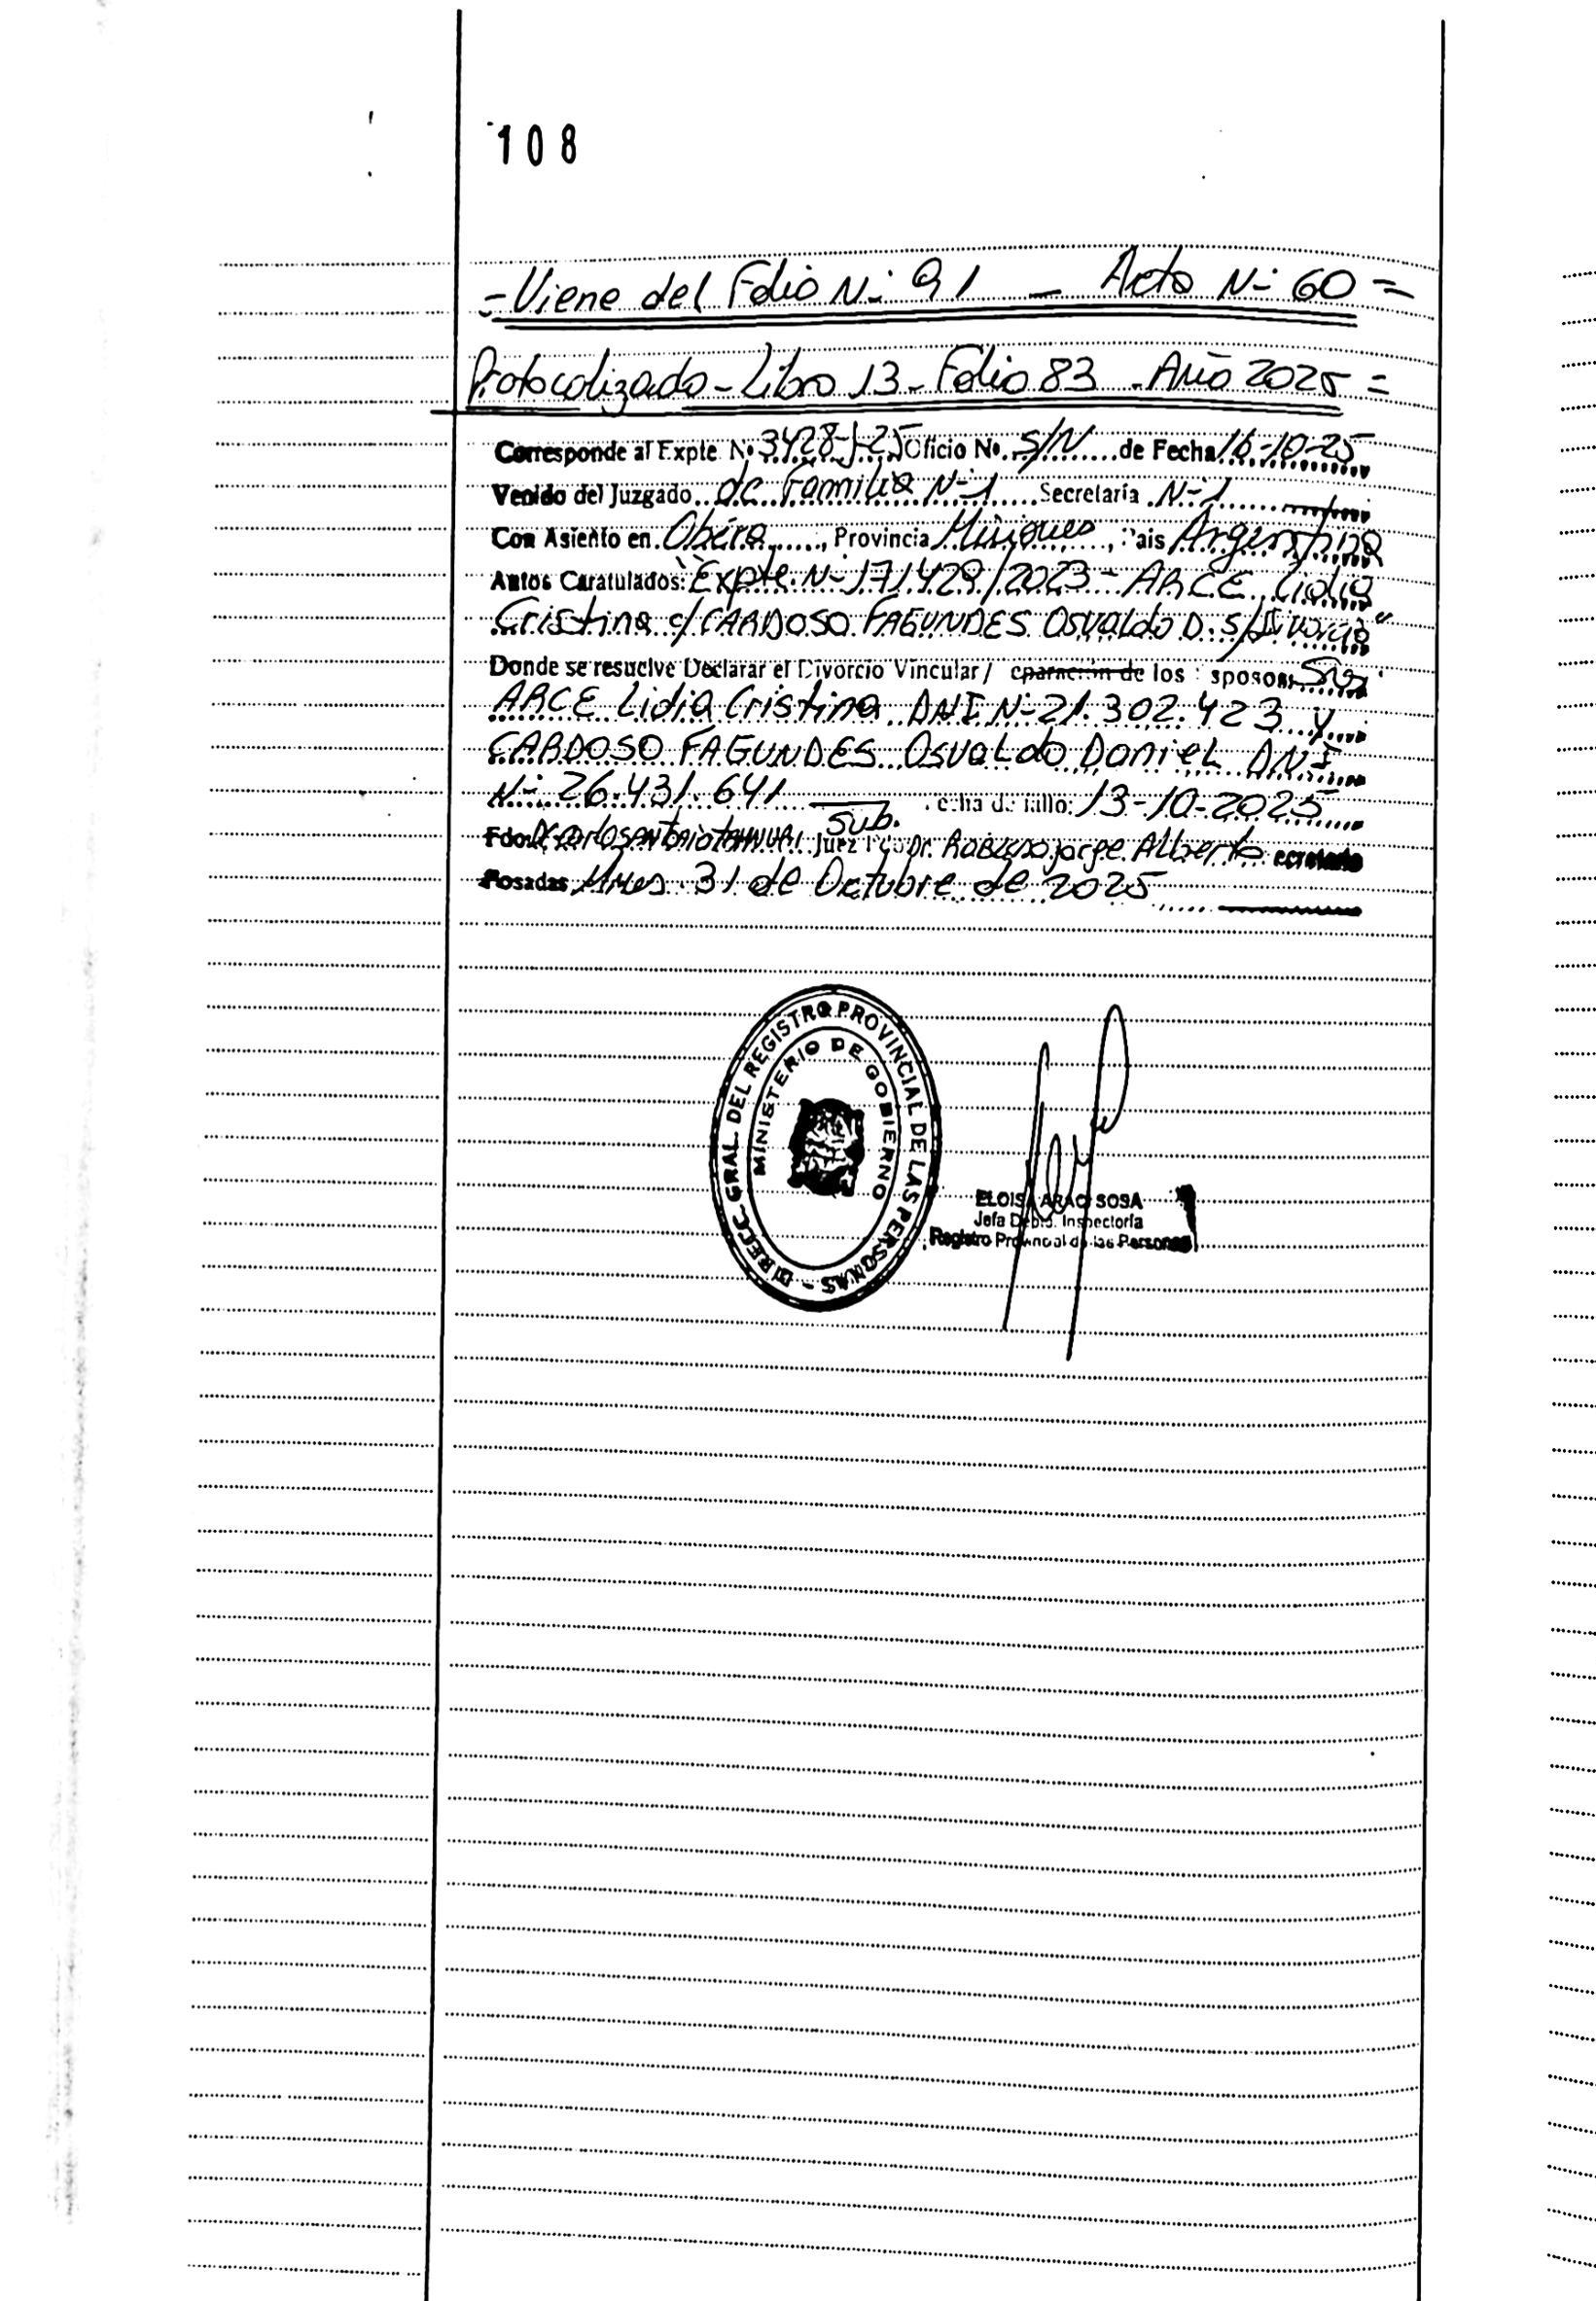 108
=Viene del Folio N- 91 - Acta N- 60=
Protocolizado-Libro 13-Folio 83-Año 2025=
Corresponde al Expte. Nº 3428-J-25 Oficio Nº S/N de Fecha 16-10-25
Venido del Juzgado de Familia N-1 Secretaría N-1
Con Asiento en Oberá, Provincia Misiones, Pais Argentina
Autos Caratulados: Expte. N- 171429/2023 - ARCE Lidia
Cristina c/ CARDOSO FAGUNDES Osvaldo D. s/Divorcio"
Donde se resuelve Declarar el Divorcio Vincular/ eparación de los sposos: Sres
ARCE Lidia Cristina DNI N- 21.302.423 y
CARDOSO FAGUNDES Osvaldo Daniel DNI
N- 26.431.641 echa de fallo: 13-10-2025
Sub.
Fdo. Juez Dr. Jorge Alberto ecretario
Posadas, Mnes. 31 de Octubre de 2025
DIRECC. GRAL. DEL REGISTRO PROVINCIAL DE LAS PERSONAS -
MINISTERIO DE GOBIERNO
ELOISA ARACI SOSA
Jefa Depto. Inspectoría
Registro Provincial de las Personas